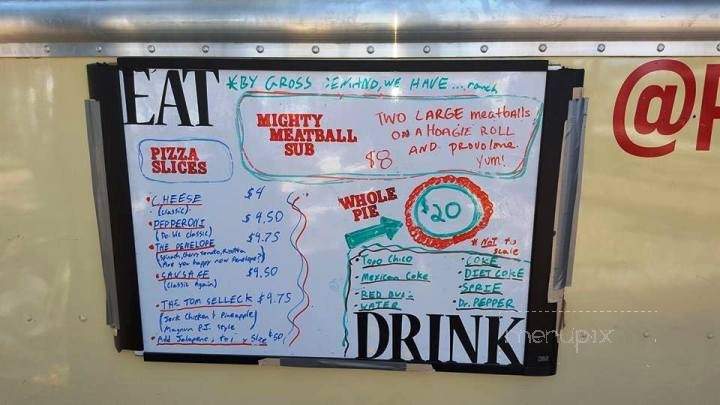 EAT
*BY GROSS DEMAND, WE HAVE ... ranch
MIGHTY
MEATBALL
SUB
$8
TWO LARGE meatballs
ON A HOAGIE ROLL
AND provolone.
Yum!
PIZZA
SLICES
• CHEESE $4
(classic)
• PEPPERONI $4.50
(Double classic)
• THE PENELOPE $4.75
Spinach, Cherry Tomato, Ricotta
Are you happy now Penelope?)
• SAUSAGE $4.50
(Classic Again)
• THE TOM SELLECK $4.75
(Jerk Chicken & Pineapple)
Magnum P.I. style
• Add Jalapenos to a Slice $.50
WHOLE
PIE
$20
* Not to
scale
• Topo Chico
• Mexican Coke
• RED BULL
WATER
• COKE
• DIET COKE
• SPRITE
• Dr. PEPPER
DRINK
@
menupix